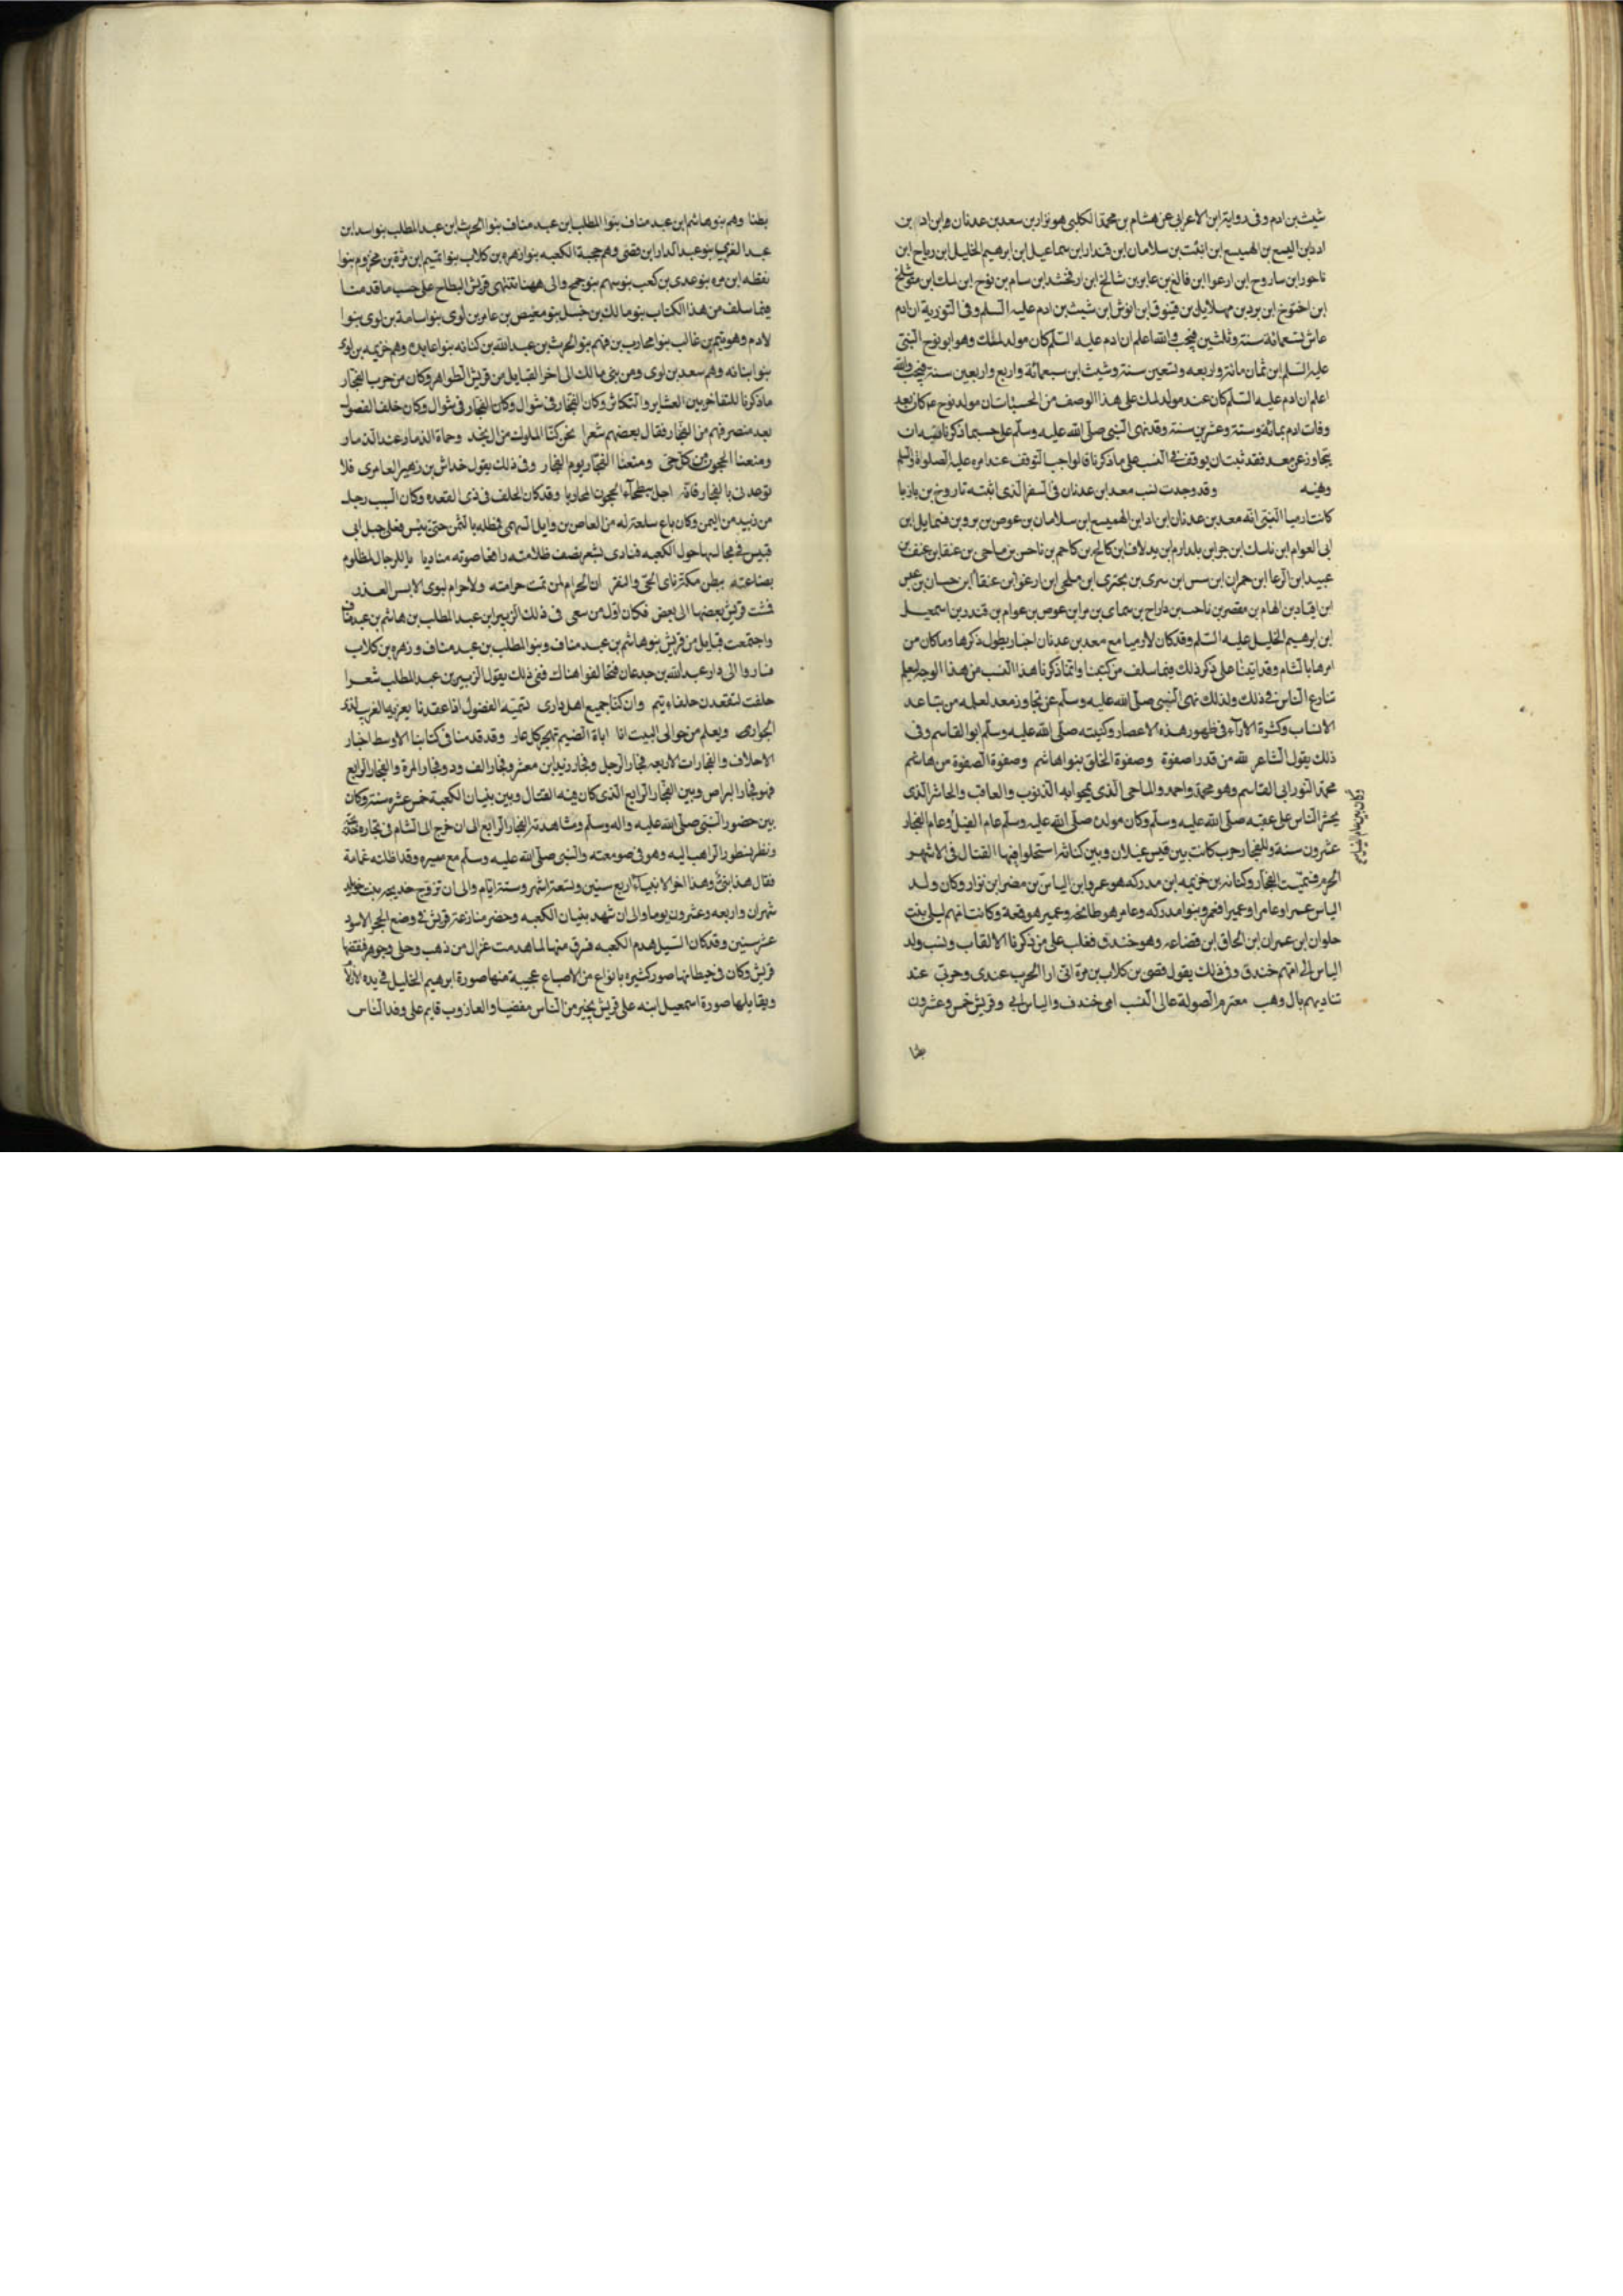 شيث بن ادم وفى رواية ابن الاعرابى عن هشام بن محمد الكلبى هو نزار بن معد بن عدنان وابن ادد بن
ادد ابن اليسع بن الهميسع ابن انبت بن سلامان ابن قندار ابن سماعيل ابن ابرهيم الخليل ابن رياح ابن
ناحور ابن ساروح ابن ارعوا ابن فالغ بن عابر بن شالخ ابن ارفخشد ابن سام بن نوح ابن لمك ابن متوشلخ
ابن اخنوخ ابن برد بن مهلائيل بن قينوق ابن انوش ابن شيث بن ادم عليه السلم وفى التورية ان ادم
عاش تسعمائة سنة وثلثين فيجب والله اعلم ان ادم عليه السلم كان مولد لملك وهو ابو نوح النبى
عليه السلم ابن ثمان مائة واربعه وتسعين سنة وشيث ابن سبعمائة واربع واربعين سنة فيجب والله
اعلم ان ادم عليه السلم كان عند مولد لمك على هذا الوصف من الحسبات ان مولد نوح ع م كان بعد
وفات ادم بمائة وستة وعشرين سنة وقد نهى النبى صلى الله عليه وسلم على حسبما ذكرنا نسبه ان
يتجاوز عن معد فقد ثبت ان يوقف فى النسب على ما ذكرنا قالوا جب التوقف عند امره عليه الصلوة والسلم
وهيه وقد وجدت نسب معد ابن عدنان فى السفر الذى اثبته تاروخ بن ياريا
كانت ارميا النبى انه معد بن عدنان ابن ادد ابن الهميسع ابن سلامان بن عوص بن برو بن فتمايل ابن
ابى العوام ابن ناسك ابن جر ابن يلدارم ابن بدلاف ابن كالح بن كاحم بن ناحس بن ماحى بن عنقا ابن عنف بن
عبيد ابن الرعا ابن حمران ابن سس ابن سرى بن بحترى ابن ملحى ابن ارعوا ابن عنقا ابن حسان بن عيس
ابن اقياد بن الهام بن مقصر بن ناحب بن داراح بن سماى بن مر ابن عوص بن عوام بن قندر بن اسمعيل
ابن ابرهيم الخليل عليه السلم وقد كان لارميا مع معد بن عدنان اخبار يطول ذكرها وما كان من
امرها بالشام وقد اتينا على ذكر ذلك فيما سلف من كتبنا وانما ذكرنا هذا النسب من هذا الوجه ليعلم
تنازع الناس فى ذلك ولذلك نهى النبى صلى الله عليه وسلم عن تجاوز معد لعلمه من تباعد
الانساب وكثرة الاراء فى ظهور هذه الاعصار وكنيته صلى الله عليه وسلم ابو القاسم وفى
ذلك يقول الشاعر لله من قدر اصفوة وصفوة الخلق بنوا هاشم وصفوة الصفوة من هاشم
محمد النور ابى القاسم وهو محمد واحمد والماحى الذى يمحوا به الذنوب والعاقب والحاشر الذى
يحشر الناس على عقبه صلى الله عليه وسلم وكان مولده صلى الله عليه وسلم عام الفيل وعام الفجار
عشرون سنة والفجار حرب كانت بين قيس غيلان وبين كنانه استحلوا فيها القتال فى الاشهر
الحرم فسميت الفجار وكنانه بن خزيمه ابن مدركه هو عمرو ابن الياس بن مضر ابن نزار وكان ولد
الياس عمرا وعامرا وعميرا فعمرو بنوا مدركه وعامر هو طابخه وعمير هو قمعة وكانت امهم ليلى بنت
حلوان ابن عمران ابن الحاق ابن قضاعه وهو خندف فغلب على من ذكرنا الالقاب ونسب ولد
الياس الى امهم خندق وفى ذلك يقول قصى بن كلاب بن مرة انى ارا الحرب عندى وحربى عند
تناديهم بال وهب معترم الصولة عالى النسب امى خندف والياس ابى وقريش خمس وعشرون
بطنا
وكان بين عام الفيل
بطنا وهم بنو هاشم ابن عبد مناف بنوا المطلب ابن عبد مناف بنوا الحرث ابن عبد المطلب بنو اسد ابن
عبد العزى بنو عبد الدار ابن قصى وهم حجبة الكعبه بنوا زهره بن كلاب بنوا تميم ابن مرة بن مخزوم بنوا
نقظه ابن مره بنو عدى بن كعب بنو سهم بنو جمح والى ههنا تنتهى قريش البطاح على حسب ما قدمنا
فيما سلف من هذا الكتاب بنو مالك بن حنبل بنو معيص بن عامر بن لوى بنو اسامة بن لوى بنوا
لادم وهو تيم بن غالب بنوا محارب بن فهم بنو الحرث بن عبد الله بن كنانه بنوا عايده وهم خزيمه بن لوى
بنوا بنانه وهم سعد بن لوى ومن بنى مالك الى اخر القبايل من قريش الظواهر وكان من حرب الفجار
ماذكرنا للتفاخر بين العشاير والتكاثر وكان الفجار فى شوال وكان الفجار فى شوال وكان خلف الفصول
بعد منصرفهم من الفجار فقال بعضهم شعرا نحن كنا الملوك من ال نجد وحماة الذمار عند الذمار
ومنعنا الحجون من كل حى ومنعنا الفجار يوم الفجار وفى ذلك يقول خداش بن زهير العامرى فلا
توعدنى بالفجار فانه احل ببطحاء الحجون المحاربا وقد كان الحلف فى ذى القعده وكان السبب رجل
من زبيد من اليمن وكان باع سلعة له من العاص بن وايل السهمى فظله بالثمن حتى يئس فعلى جبل ابى
قبيس فى مجالسها حول الكعبه فنادى بشعر يصف ظلامته رافعا صوته مناديا يا للرجال لمظلوم
بضاعته ببطن مكة ناى الحى والنفر ان الحرام لمن تمت حرامته ولاحرام لبوى الابس الغدر
فشت قريش بعضها الى بعض فكان اول من سعى فى ذلك الزبير ابن عبد المطلب بن هاشم بن عبد مناف
واجتمعت قبايل من قريش بنو هاشم بن عبد مناف وبنو المطلب بن عبد مناف وزهره بن كلاب
فساروا الى دار عبد الله بن جدعان فتحالفوا هناك ففى ذلك يقول الزبير بن عبد المطلب شعرا
حلفت لنقعدن حلفاء يتم وان كنا جميع اهل دارى نسميه الفضول اذا عقدنا يعز به الغرب لذى
الجوار ويعلم من حوالى البيت انا اباة الضيم نهجر كل عار وقد قدمنا فى كتابنا الاوسط اخبار
الاحلاف والفجارات الاربعه فجار الرجل وفجار زيد ابن معشر وفجار الف ود وفجار المرة والفجار الرابع
فهو فجار البراص وبين الفجار الرابع الذى كان فيه القتال وبين بنيان الكعبة خمس عشره سنة وكان
بين حضور النبى صلى الله عليه واله وسلم ومشاهدته الفجار الرابع الى ان خرج الى الشام فى تجاره خديجة
ونظر نسطور الراهب اليه وهو فى صومعته والنبى صلى الله عليه وسلم مع ميسره وقد اظلته غمامة
فقال هذا نبى وهذا اخر الانبياء اربع سنين وتسعة اشهر وستة ايام والى ان تزوج خديجه بنت خويلد
شهران واربعه وعشرون يوما والى ان شهد بنيان الكعبه وحضر منازعة قريش فى وضع الحجر الاسود
عشر سنين وقد كان السيل هدم الكعبه فسرق منها لما هدمت غزال من ذهب وحلى وجوهر فنقضها
قريش وكان فى حيطانها صور كثيره بانواع من الاصباغ عجيبة منها صورة ابرهيم الخليل فى يده الازلام
ويقابلها صورة اسمعيل ابنه على فرس يجيز من الناس مفضيا والعازوب قايم على وفد الناس